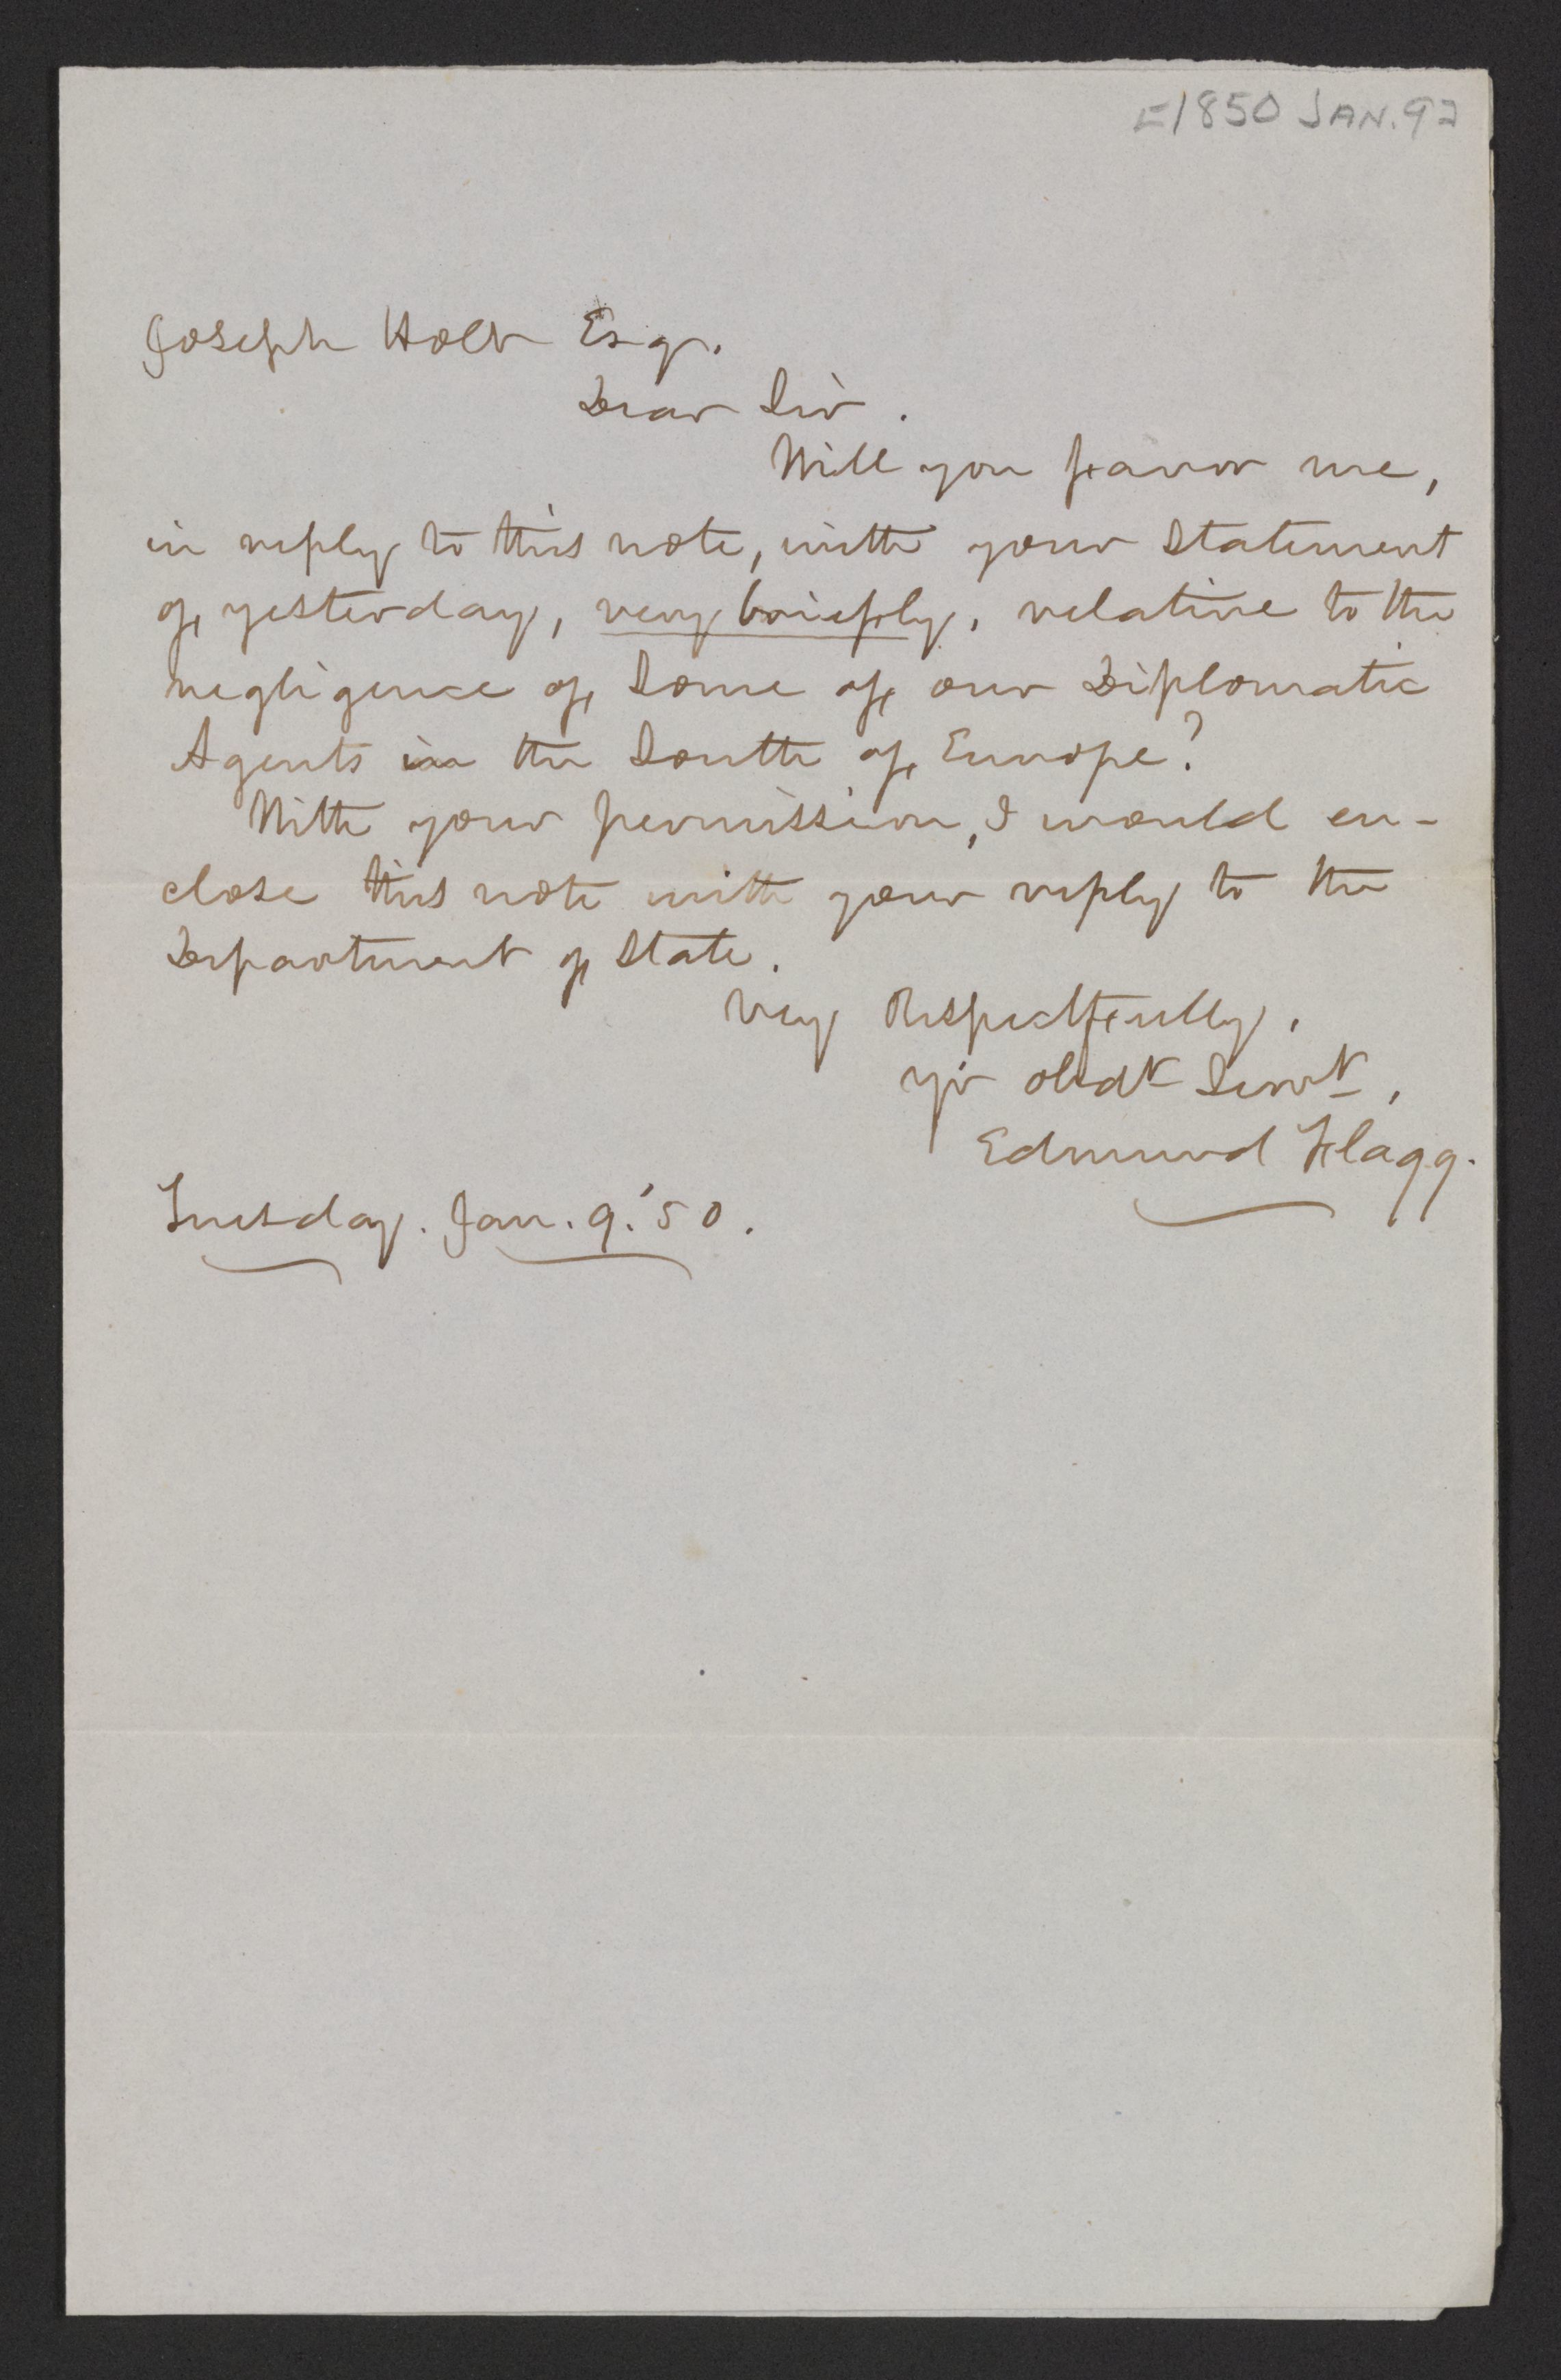 [1850 JAN. 9]
Joseph Holt Esqr.
Dear Sir.
Will you favor me,
in reply to this note, with your Statement
of yesterday, very briefly, relative to the
negligence of Some of our Diplomatic
Agents in the South of Europe?
With your permission, I would en-
close this note with your reply to the
Department of State.
Very Respectfully,
yr obdt Servt,
Edmund Flagg.
Tuesday. Jan. 9. '50.